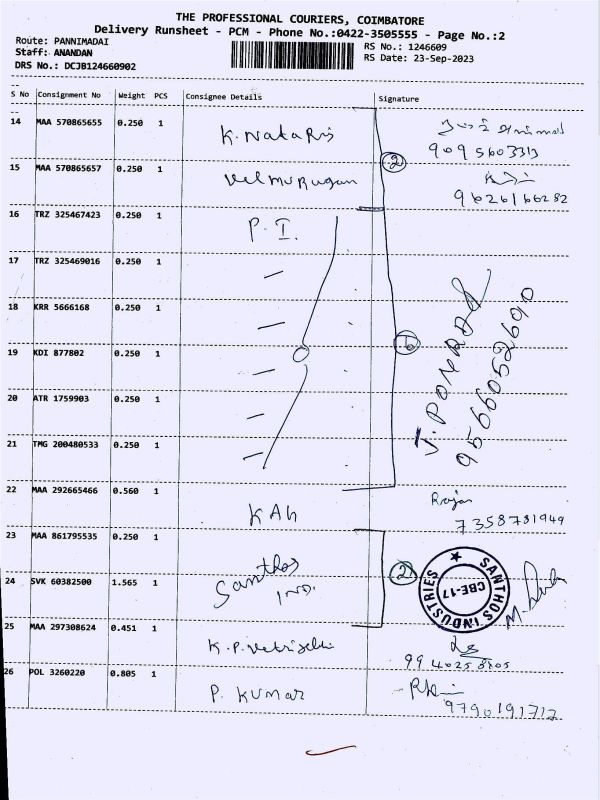 THE PROFESSIONAL COURIERS, COIMBATORE
Delivery Runsheet - PCM - Phone No.:0422-3505555 - Page No.:2
Route: PANNIMADAI
Staff: ANANDAN
DRS No.: DCJB124660902
RS No.: 1246609
RS Date: 23-Sep-2023
S No Consignment No Weight PCS Consignee Details Signature
14 MAA 570865655 0.250 1 K. Nataraj
9095603313
15 MAA 570865657 0.250 1 Velmurugan
9626166282
2
16 TRZ 325467423 0.250 1 P. I.
17 TRZ 325469016 0.250 1 —
18 KRR 5666168 0.250 1 —
19 KDI 877802 0.250 1 6 J. PONRAJ
9566052690
20 ATR 1759903 0.250 1 —
21 TMG 200480533 0.250 1 —
22 MAA 292665466 0.560 1 KAH Rajan
7358731949
23 MAA 861795535 0.250 1 Santhos
24 SVK 60382500 1.565 1 IND. 2
SANTHOS INDUSTRIES
CBE-17
25 MAA 297308624 0.451 1 K.P.
9940258505
26 POL 3260220 0.805 1 P. KUMAR
9790191712